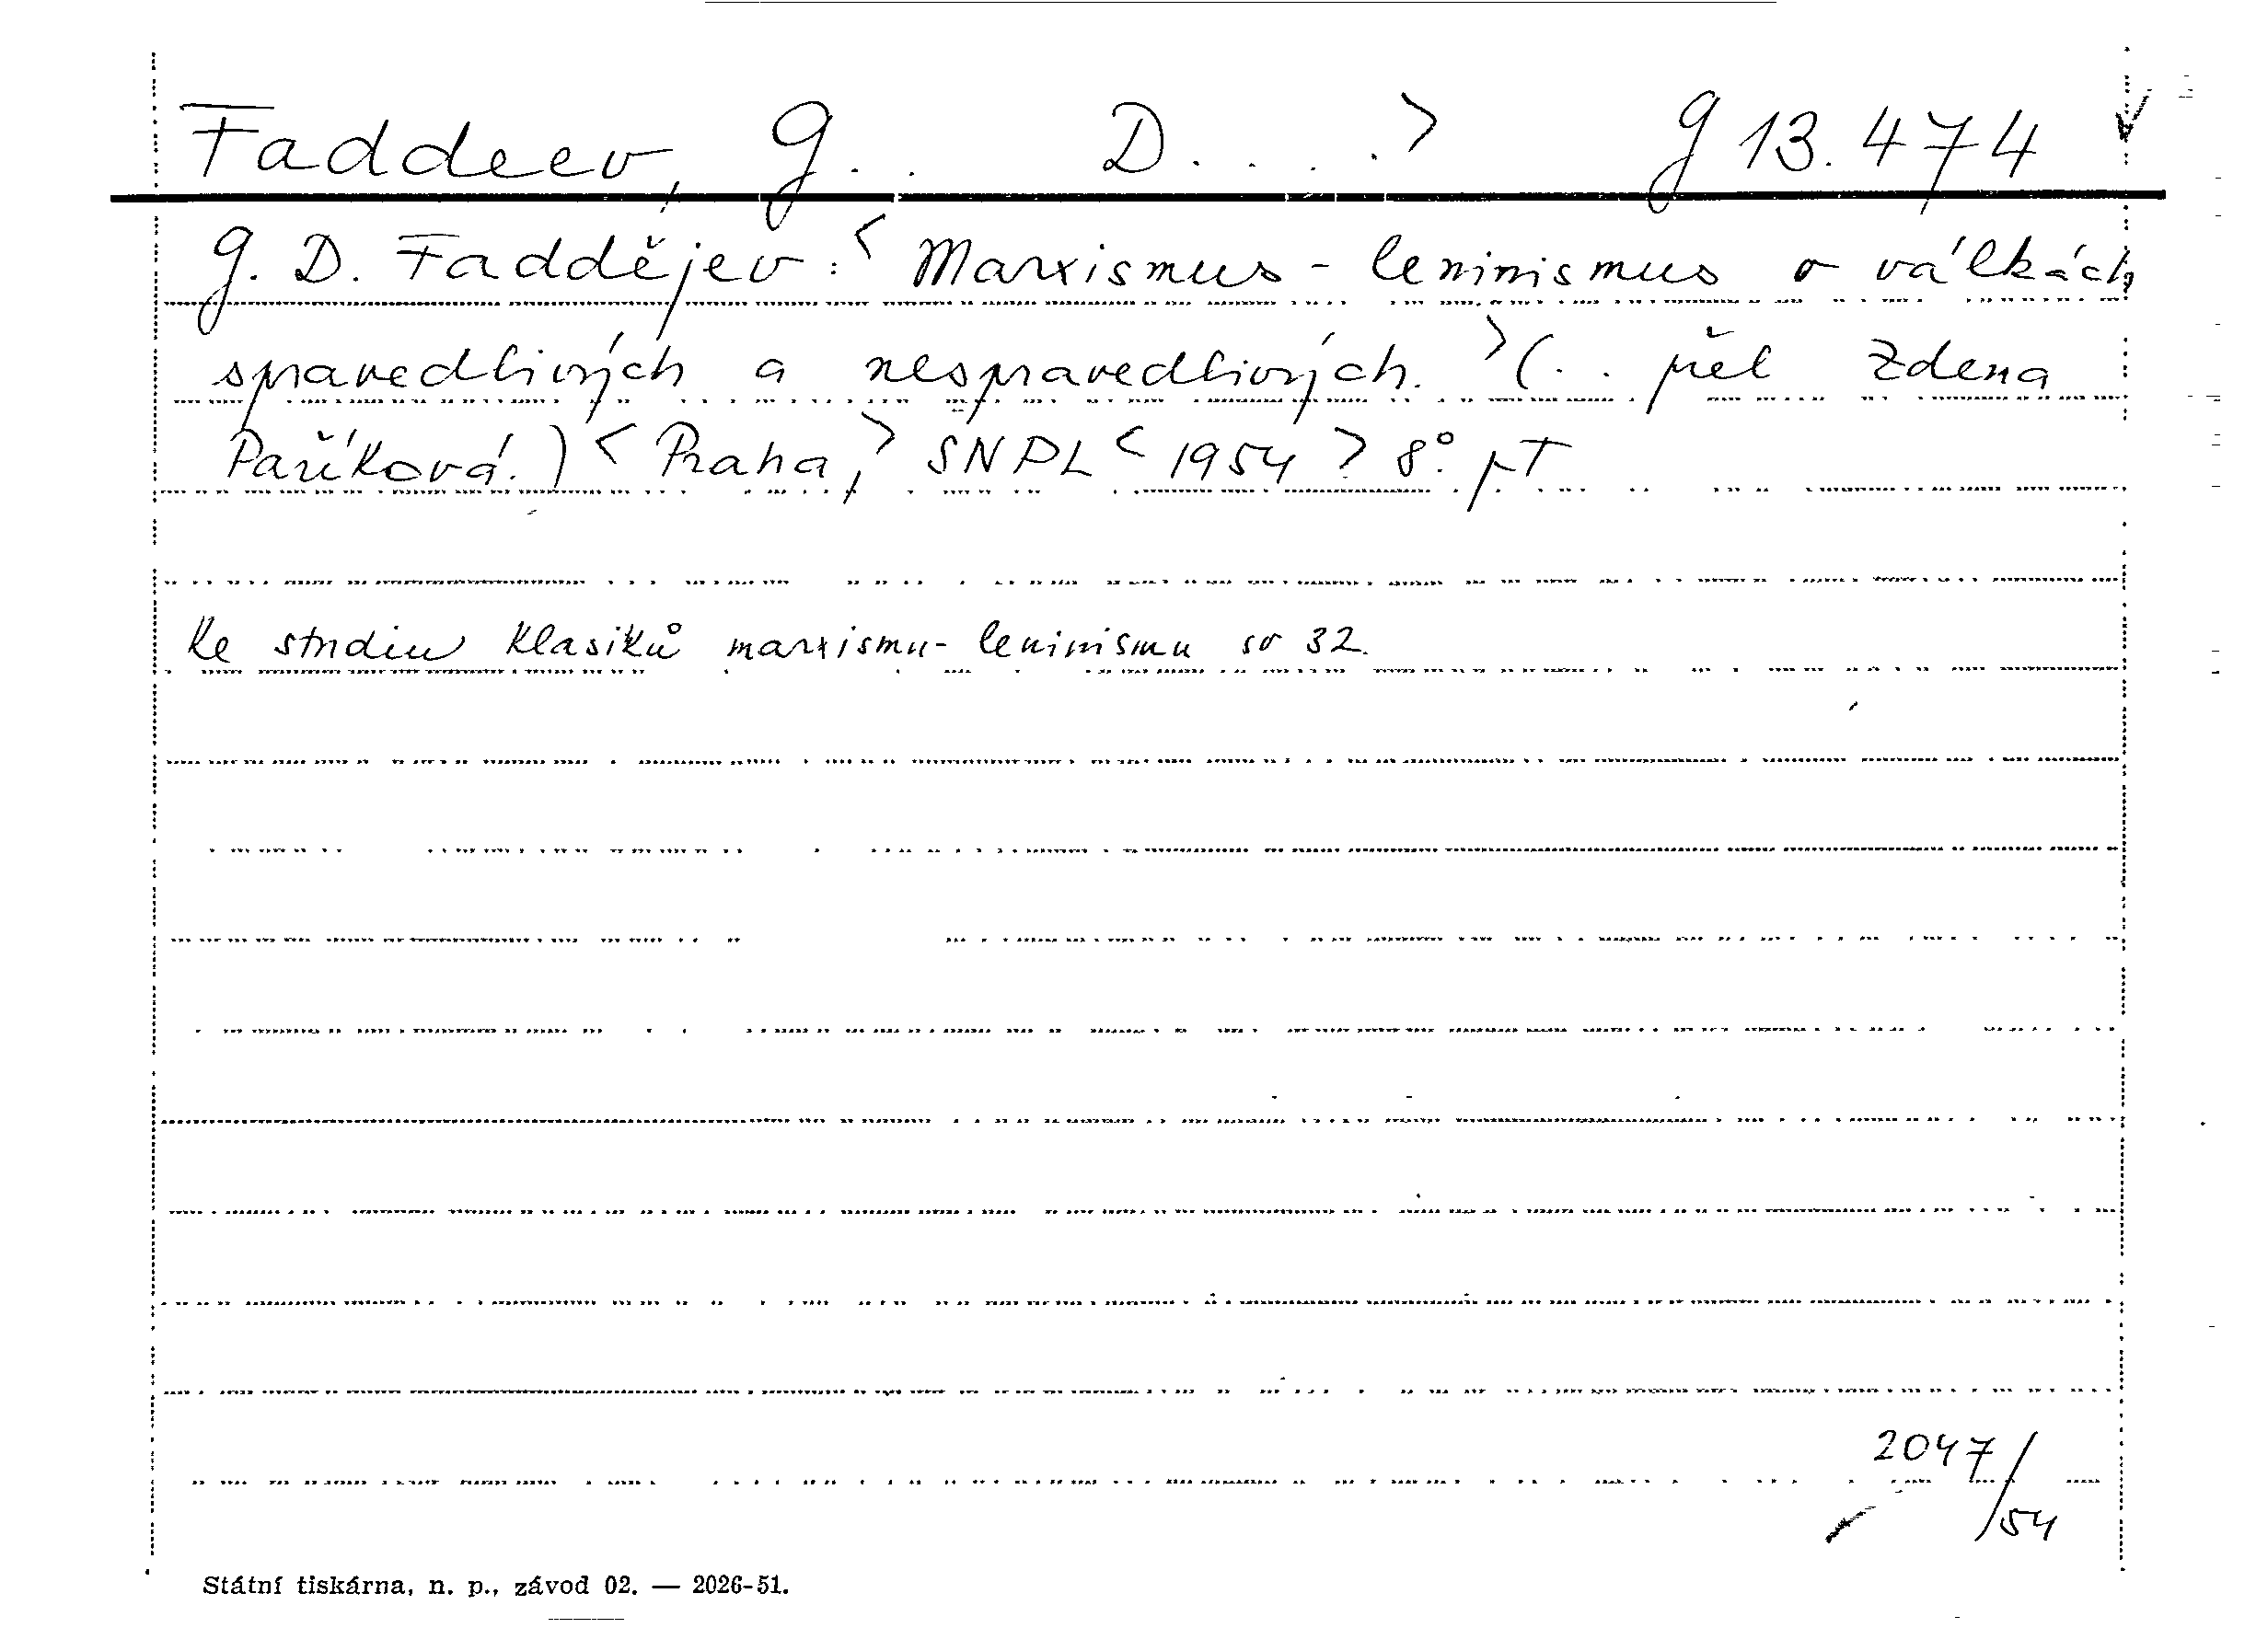 Faddeev, G. . D. . . .> G 13.474
G. D. Faddějev:< Marxismus-leninismus o válkách
spravedlivých a nespravedlivých.>(. . přel Zdena
Paříková.)<Praha,> SNPL<1954> 8°. pT
Ke studiu klasiků marxismu-leninismu sv 32.
2047/
/54
Státní tiskárna, n. p., závod 02. — 2026-51.